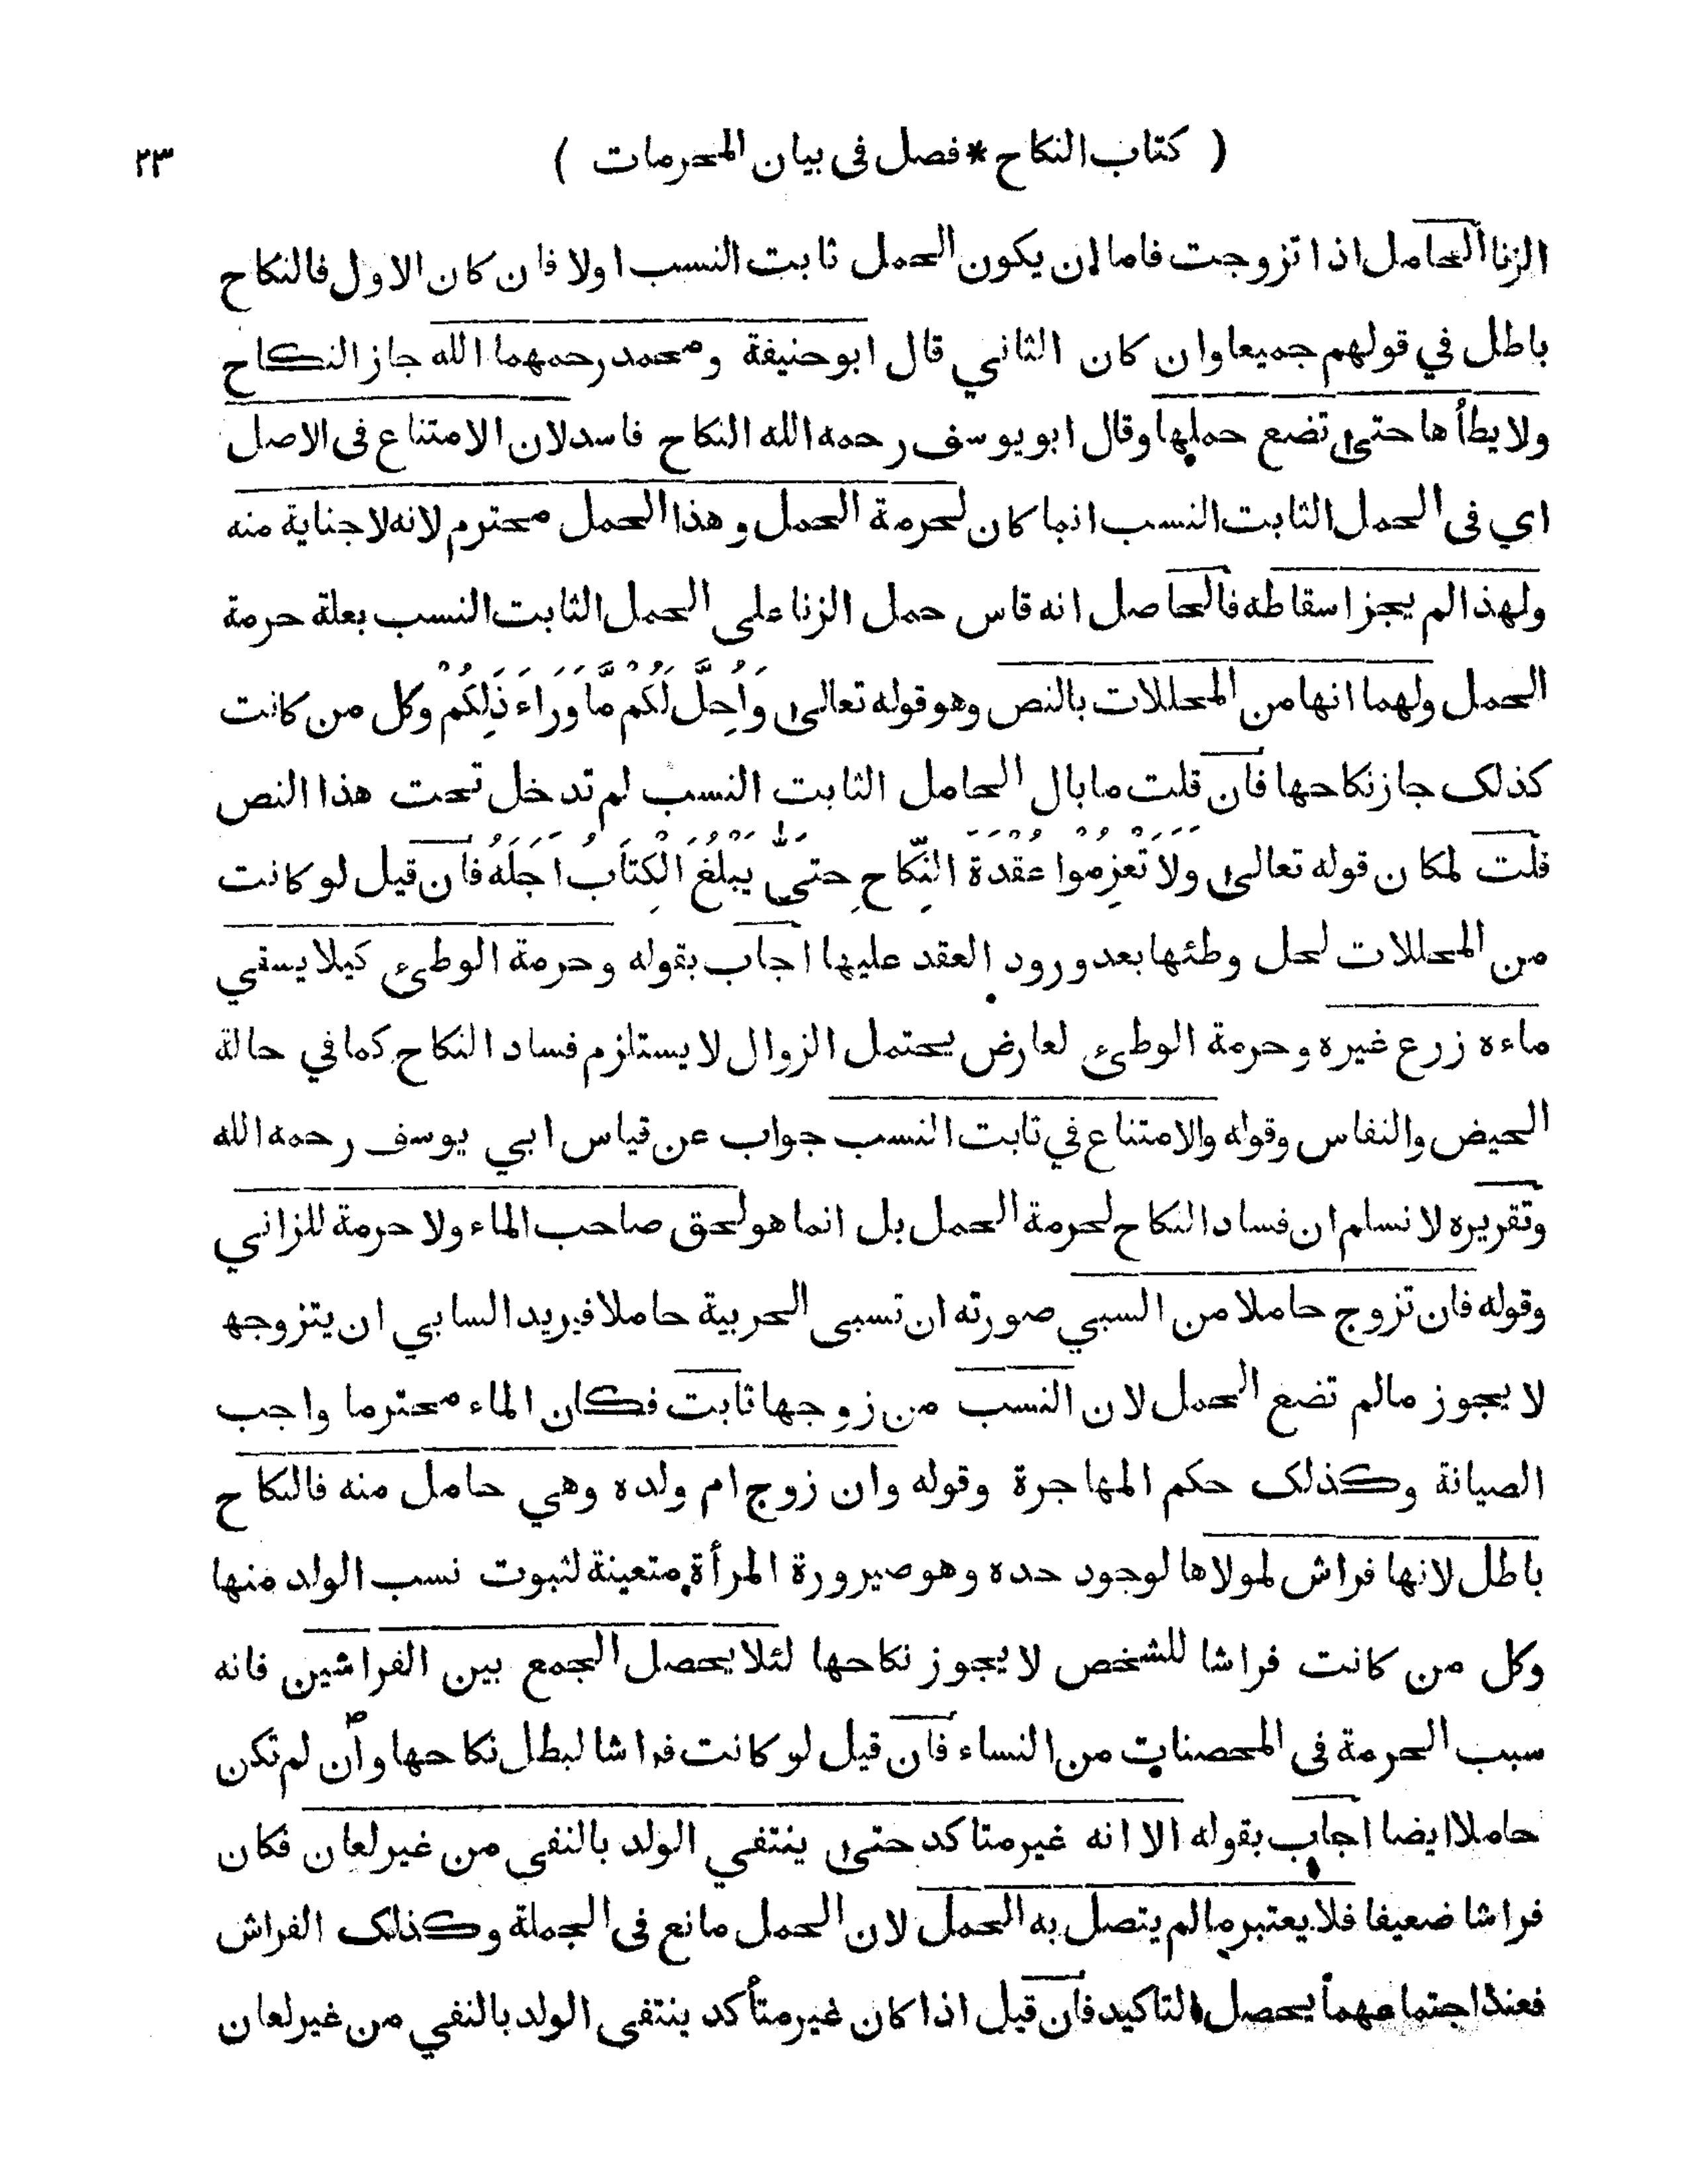 ( كتاب النكاح * فصل فى بيان المحرمات )
٢٣
الزنا الحامل اذا تزوجت فاما ان يكون الحمل ثابت النسب اولا فان كان الاول فالنكاح
باطل في قولهم جميعا وان كان الثاني قال ابو حنيفة ومحمد رحمهما الله جاز النكاح
ولا يطأها حتى تضع حملها وقال ابو يوسف رحمه الله النكاح فاسد لان الامتناع فى الاصل
اي فى الحمل الثابت النسب انما كان لحرمة الحمل وهذا الحمل محترم لانه لا جناية منه
ولهذا لم يجز اسقاطه فالحاصل انه قاس حمل الزنا على الحمل الثابت النسب بعلة حرمة
الحمل ولهما انها من المحللات بالنص وهو قوله تعالى وَاُحِلَّ لَكُمْ مَّا وَرَاءَ ذَلِكُمْ وكل من كانت
كذلك جاز نكاحها فان قلت ما بال الحامل الثابت النسب لم تدخل تحت هذا النص
قلت لمكان قوله تعالى وَلاَ تَعْزِمُوا عُقْدَةَ النِّكَاحِ حتىّٰ يَبْلُغَ الْكِتَابُ اَجَلَهُ فان قيل لو كانت
من المحللات لحل وطئها بعد ورود العقد عليها اجاب بقوله وحرمة الوطئ كيلا يسقي
ماءه زرع غيره وحرمة الوطئ لعارض يحتمل الزوال لا يستلزم فساد النكاح كما في حالة
الحيض والنفاس وقوله والامتناع في ثابت النسب جواب عن قياس ابي يوسف رحمه الله
وتقريره لا نسلم ان فساد النكاح لحرمة الحمل بل انما هو لحق صاحب الماء ولا حرمة للزاني
وقوله فان تزوج حاملا من السبي صورته ان تسبى الحربية حاملا فيريد السابي ان يتزوجها
لا يجوز مالم تضع الحمل لان النسب من زوجها ثابت فكان الماء محترما واجب
الصيانة وكذلك حكم المهاجرة وقوله وان زوج ام ولده وهي حامل منه فالنكاح
باطل لانها فراش لمولاها لوجود حده وهو صيرورة المرأة متعينة لثبوت نسب الولد منها
وكل من كانت فراشا للشخص لا يجوز نكاحها لئلا يحصل الجمع بين الفراشين فانه
سبب الحرمة فى المحصنات من النساء فان قيل لو كانت فراشا لبطل نكاحها وان لم تكن
حاملا ايضا اجاب بقوله الا انه غير متاكد حتى ينتفي الولد بالنفى من غير لعان فكان
فراشا ضعيفا فلا يعتبر مالم يتصل به الحمل لان الحمل مانع فى الجملة وكذلك الفراش
فعند اجتماعهما يحصل التاكيد فان قيل اذا كان غير متأكد ينتفى الولد بالنفي من غير لعان